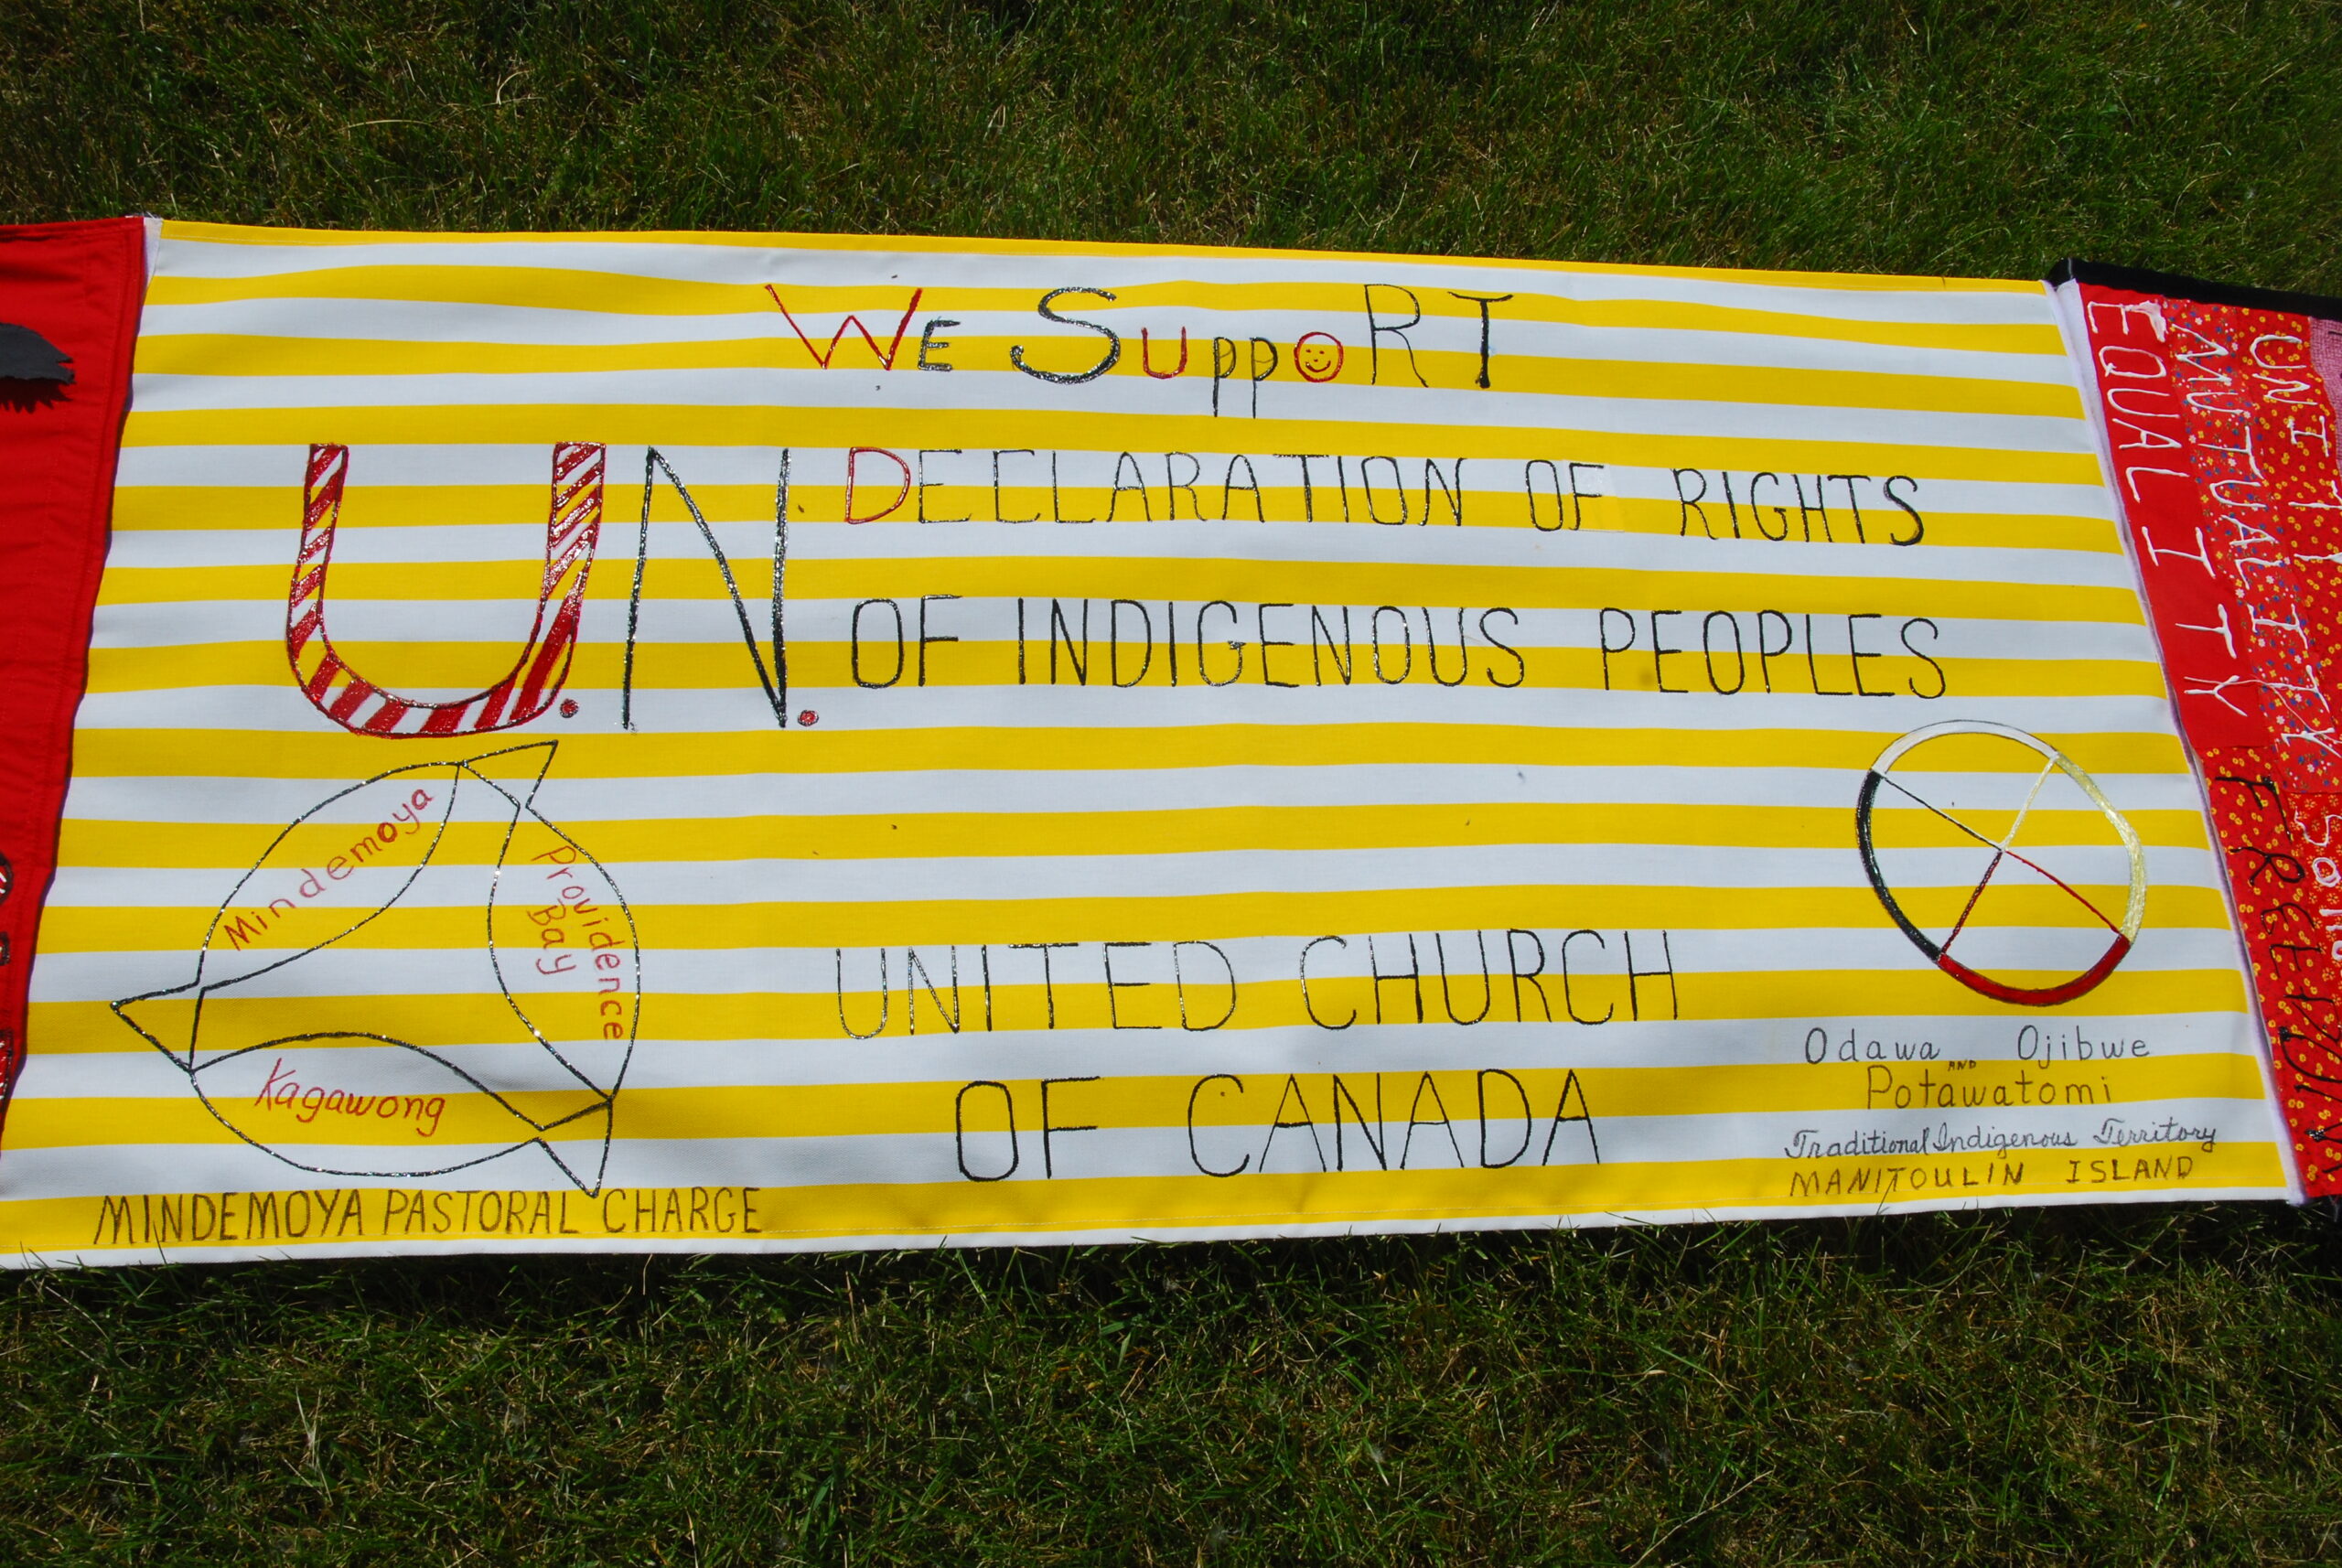 WE SuppoRT
U.N. DECLARATION OF RIGHTS
OF INDIGENOUS PEOPLES
Mindemoya
Providence
Bay
Kagawong
MINDEMOYA PASTORAL CHARGE
UNITED CHURCH
OF CANADA
Odawa AND Ojibwe
Potawatomi
Traditional Indigenous Territory
MANITOULIN ISLAND
EQUALITY
MUTUALITY
UNITY
FREEDOM